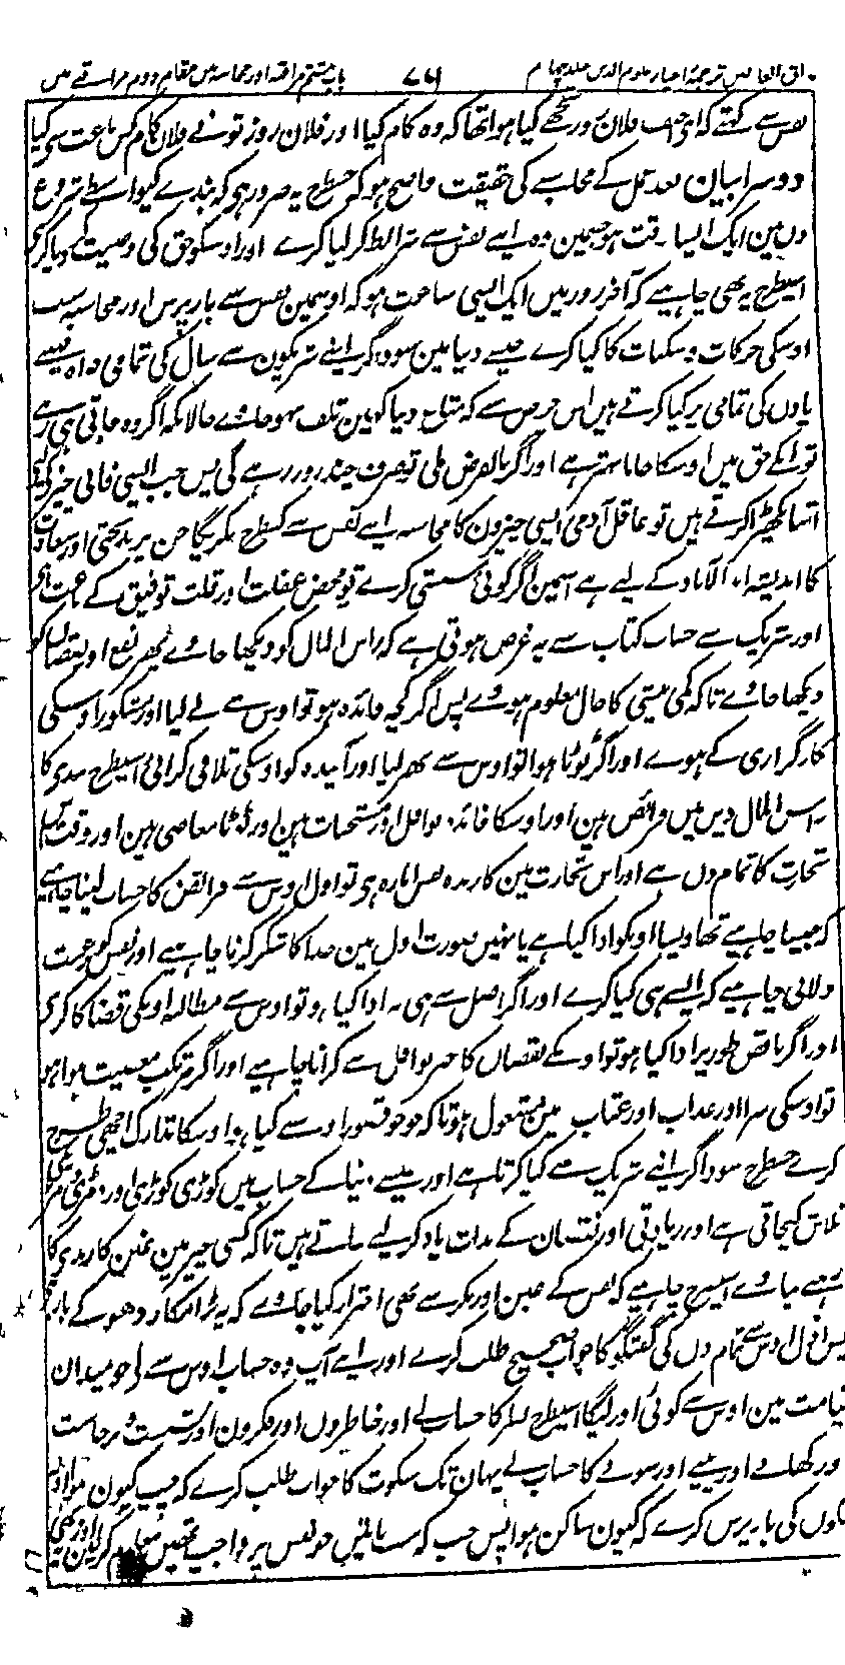 مذاق العارفین ترجمۂ احیاء علوم الدین جلد چہارم ۷۶۱ باب ہشتم مراقبہ اور محاسبہ میں مقام دوم مراقبے میں
نفس سے کہتے کہ فلان روز تجھے کیا ہوا تھا کہ وہ کام کیا اور فلان روز تونے فلان کام کس باعث سے کیا
دوسرا بیان بعد عمل کے محاسبے کی حقیقت واضح ہو کہ جسطرح یہ ضرور ہی کہ بندے کیواسطے شروع
دن مین ایک ایسا وقت ہو جسمین وہ اپنے نفس سے شرائط کر لیا کرے اور اوسکو حق کی وصیت کر دیا کرے
اسیطرح یہ بھی چاہیے کہ آخر روز میں ایک ایسی ساعت ہو کہ اوسمین نفس سے باز پرس اور محاسبہ سب
اوسکی حرکات و سکنات کا کیا کرے جیسے دنیا مین سوداگر اپنے شریکون سے سال کی تمامی و ماہ جیسے
یا دن کی تمامی پر کیا کرتے ہیں اس حرص سے کہ متاع دنیا کہین تلف نہو جاوے حالانکہ اگر وہ جاتی ہی رہے
تو انکے حق میں اوسکا جانا بہتر ہے اور اگر بالفرض ملی تو صرف چند روز رہے گی پس جب ایسی فانی چیز کے لیے
اتنا بکھیڑا کرتے ہیں تو عاقل آدمی ایسی چیزون کا محاسبہ اپنے نفس سے کسطرح نکریگا جن پر بدبختی اور سعادت
کا اندیشہ ابد الآباد کے لیے ہے اسمین اگر کوئی سستی کرے تو محض غفلت اور قلت توفیق کے باعث ہے
اور شریک سے حساب کتاب سے یہ غرض ہوتی ہے کہ راس المال کو دیکھا جاوے پھر نفع اور نقصان کو
دیکھا جاوے تاکہ کمی بیشی کا حال معلوم ہووے پس اگر کچہ فائدہ ہو تو اوس سے لے لیا اور مشکور اوسکی
کارگزاری کے ہوے اور اگر ٹوٹا ہوا تو اوس سے بھر لیا اور آیندہ کو اوسکی تلافی کرائی اسیطرح بندی کا
راس المال دین میں فرائض ہین اور اوسکا فائدہ نوافل اور مستحبات ہین اور ٹوٹا معاصی ہین اور وقت اس
تجارت کا تمام دن ہے اور اس تجارت مین کارندہ نفس امارہ ہی تو اول اوس سے فرائض کا حساب لینا چاہیے
کہ جیسا چاہیے تھا ویسا اونکو ادا کیا ہے یا نہین صورت اول مین خدا کا شکر کرنا چاہیے اور نفس کو رغبت
دلانی چاہیے کہ ایسے ہی کیا کرے اور اگر اصل سے ہی نہ ادا کیا ہو تو اوس سے مطالبہ اونکی قضا کا کرے
اور اگر ناقص طور پر ادا کیا ہو تو اوسکے نقصان کا جبر نوافل سے کرانا چاہیے اور اگر مرتکب معصیت ہوا ہو
تو اوسکی سزا اور عذاب اور عتاب مین مشغول ہو تاکہ جو جو قصور اوسنے کیا ہو اوسکا تدارک اچھی طرح
کرے جسطرح سوداگر اپنے شریک سے کیا کرتا ہے اور جیسے دنیا کے حساب میں کوڑی کوڑی اور دمڑی دمڑی کی
تلاش کیجاتی ہے اور زیادتی اور نقصان کے مدات یاد کر لیے جاتے ہیں تاکہ کسی چیز مین غبن کارندی کا
نہ ہے جاوے اسیطرح چاہیے کہ نفس کے غبن اور مکر سے بھی احتراز کیا جاوے کہ یہ بڑا مکار دھوکے باز
پس اول اوس سے تمام دن کی گفتگو کا جواب صحیح صحیح طلب کرے اور اپنے آپ وہ حساب اوس سے لے جو میدان
قیامت مین اوس سے کوئی اور لیگا اسیطرح نظر کا حساب لے اور خاطرون اور فکرون اور نشست و برخاست
اور کھانے اور پینے اور سونے کا حساب لے یہان تک سکوت کا جواب طلب کرے کہ چپ کیون ہوا اور
کی باز پرس کرے کہ کیون ساکن ہوا پس جب کہ سب باتین جو نفس پر واجب تھیں معلوم کر لین